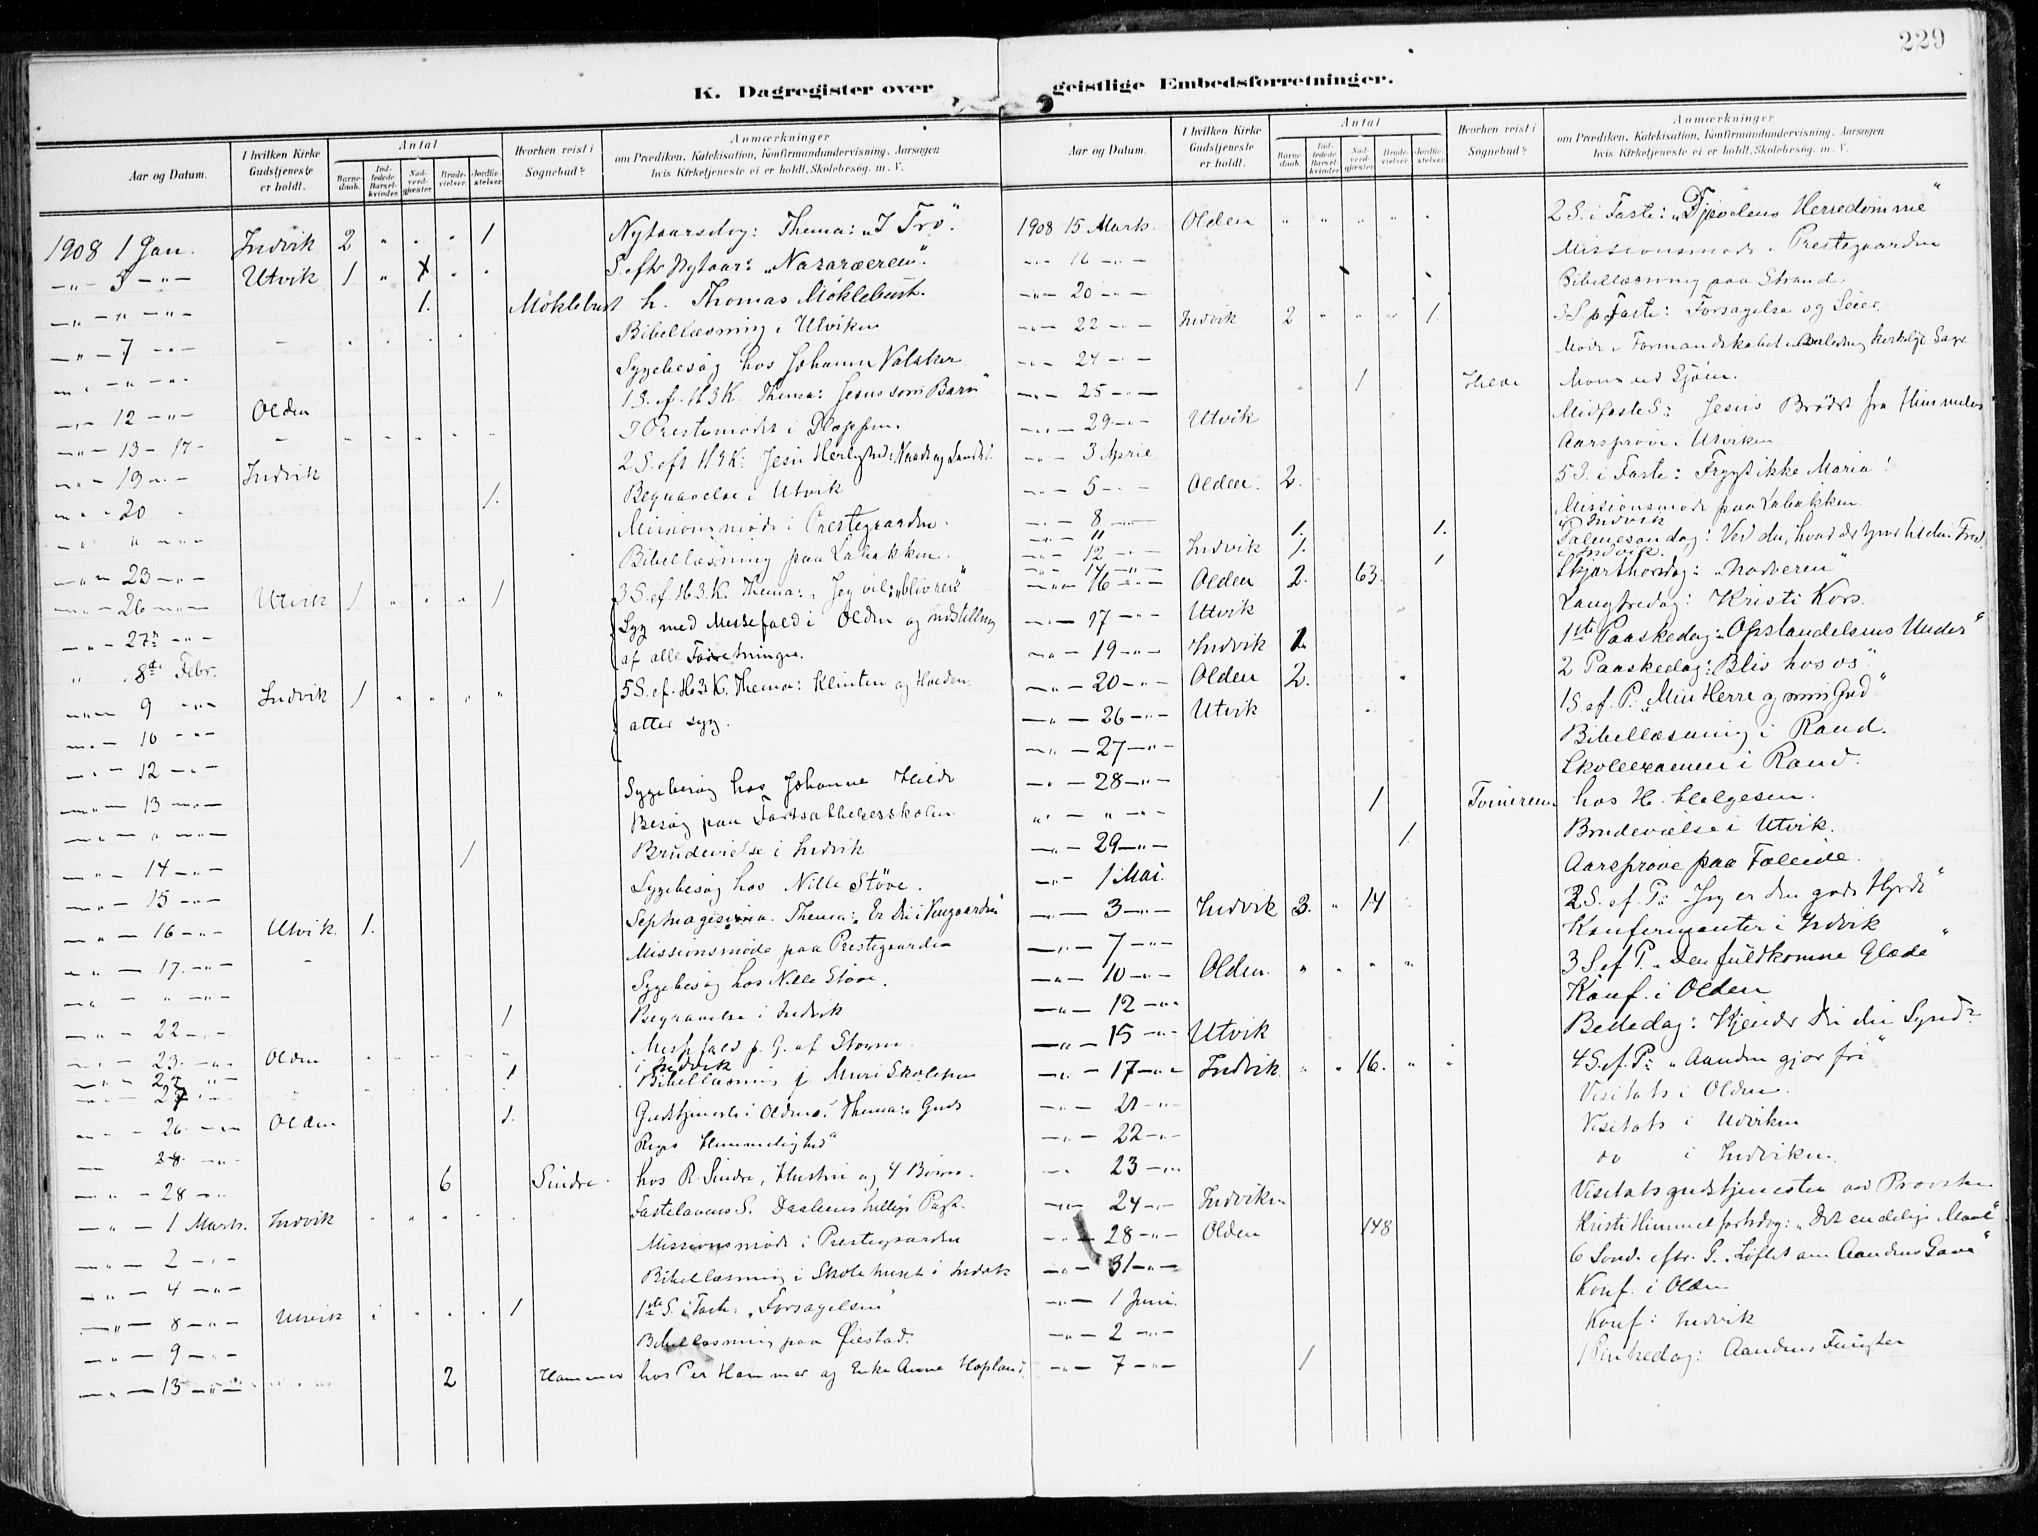 229
K. Dagregister over geistlige Embedsforretninger.
Aar og Datum. I hvilken Kirke Gudstjeneste er holdt. Antal Barnedaab. Indledede Barselkvinder. Nadverdgjæster. Brudevielser. Jordfæstelser. Hvorhen reist i Sognebud? Anmærkninger om Prædiken, Katekisation, Konfirmandundervisning, Aarsagen hvis Kirketjeneste ei er holdt, Skolebesøg, m. V.
1908 1 Jan. Indvik 2 " . . 1 Nytaarsdag: Thema: "I Tro".
-"- 5 -"- Utvik 1 " . . S. eftr Nytaar: "Nazaræeren".
-"- "- -"- 1. Möklebust h. Thomas Möklebust.
-"- 7 -"- Bibellæsning i Utviken
-"- "- -"- Sygebesøg hos Johanne
-"- 12 -"- Olden 1 S. ef. H3K. Thema: Jesus som Barn"
-"- 13-17 - I Prestemødet i
-"- 19 -"- Indvik 2 S. eft. H3K: Jesu Herlighed:
-"- 20 1. Begravelse i Utvik
-"- "- -"- Missionsmøde i Prestegaarden.
-"- 23 -"- Bibellæsning paa Labakken.
-"- 26 -"- Utvik 1 " " " 1 3 S. ef. H3.K. Thema: "Jeg vil; bliv ren"
-"- 27 -"- Syg med Messefald i Olden og indstilling
" 8de Febr. af alle Forretninger.
-"- 9 -"- Indvik 1 " " " " 5 S. ef. H3K. Thema: Klinten og Hveden.
-"- 10 -"- atter syg.
-"- 12 -"-
-"- 13 -"- Sygebesøg hos Johanne Hilde
-"- "- -"- Besøg paa Fortsættelsesskolen.
-"- 14 -"- 1 Brudevielse i Indvik
-"- 15 -"- Sygebesøg hos Nille Støve.
-"- 16 -"- Utvik. 1. Septuagesima. Thema: "Er Du i Vingaarden"
-"- 17. -"- Missionsmøde paa Prestegaarden
-"- "- -"- Sygebesøg hos Nille Støve.
-"- 22 -"- 1 Begravelse i Indvik
-"- 23. -"- Olden Messefald p. G. af Storm.
i Indvik
1 Bibellæsning
-"- 26 -"- Olden 1. Gudstjeneste i Olden: Thema: Guds
- 28. -"- Riges Hemmelighed"
-"- 28 -"- 6 Sindre. hos R. Sindre, Hustru og 4 Børn.
-"- 1 Marts. Indvik Fastelavens S. Daabens
-"- 2 -"- Missionsmøde i Prestegaarden
-"- 4 -"- Bibellæsning i Skolehuset i Indvik
-"- 8 -"- Utvik 1 1ste S. i Faste: "Forsagelsen"
-"- 9 -"- Bibellæsning paa Øiestad.
-"- 13 -"- 2 Hammer hos Per Hammer og Enke Anne Hopland.
Aar og Datum. I hvilken Kirke Gudstjeneste er holdt. Antal Barnedaab. Indledede Barselkvinder. Nadverdgjæster. Brudevielser. Jordfæstelser. Hvorhen reist i Sognebud? Anmærkninger om Prædiken, Katekisation, Konfirmandundervisning, Aarsagen hvis Kirketjeneste ei er holdt, Skolebesøg, m. V.
1908 15 Marts. Olden " " " " " 2 S. i Faste: "Djævlens Herredømme"
-"- 16 -"- Missionsmøde i Prestegaarden
-"- 20 -"- Bibellæsning paa Strand.
-"- 22 -"- Indvik 2 " " " 1 3 S. i Faste: Forsagelse og Seier.
-"- 24 -"- Møde i Formandskabet
-"- 25 -"- 1 Hilde
-"- 29 -"- Utvik Midfaste S: Jesus Brødet fra Himmelen
-"- 3 April Aarsprøve i Utviken
-"- 5 -"- Olden. 2. 5 S. i Faste: Frygt ikke Maria!
-"- 8 -"- Missionsmøde paa Labakken.
-"- 11 1. 1. i Indvik
-"- 12 -"- Indvik 1. Palmesøndag: Ved du, hvad der tjener til din Fred.
-"- 14 -"- 1 i Indvik.
-"- 16 -"- Olden 2. 63. Skjærthorsdag: "Nadveren"
-"- 17 -"- Utvik Langfredag: Kristi Kors.
-"- 19 -"- Indvik 1. 1ste Paaskedag: "Opstandelsens Under"
-"- 20 -"- Olden 2. 2 Paaskedag: "Bliv hos os".
-"- 26 -"- Utvik 1 S. ef. P. "Min Herre og min Gud"
-"- 27 -"- Bibellæsning i Rand.
-"- 28 -"- Skoleexamen i Rand.
-"- "- -"- 1 hos H. Helgesen.
-"- 29 -"- 1. Brudevielse i Utvik.
-"- 1 Mai. Aarsprøve paa Faleide.
-"- 3 -"- Indvik 3. " 14 2 S. ef. P.: "Jeg er den gode Hyrde"
-"- 7 -"- Konfirmanter i Indvik
-"- 10 -"- Olden. " " " " 3 S. ef P. "Den fuldkomne Glæde"
-"- 12 -"- Konf. i Olden
-"- 15 -"- Utvik Bededag: Kjender Du din Synd?
-"- 17 -"- Indvik. " " 16. " " 4 S. ef. P: "Aanden gjør fri"
-"- 21 -"- Visitats i Olden.
-"- 22 -"- Visitats i Utviken
-"- 23 -"- do i Indviken.
-"- 24 -"- Indviken Visitatsgudstjenesten ved Provsten
-"- 28 -"- Olden 148 Kristi Himmelfartsdag: "Det endelige Maal"
-"- 31 -"- 6 Sønd. eftr. P. "Løftet om Aandens Gave"
-"- 1 Juni. Konf. i Olden
-"- 2 -"- Konf: Indvik
-"- 7 -"- 1 1 Pinsedag: Aandens Frugter